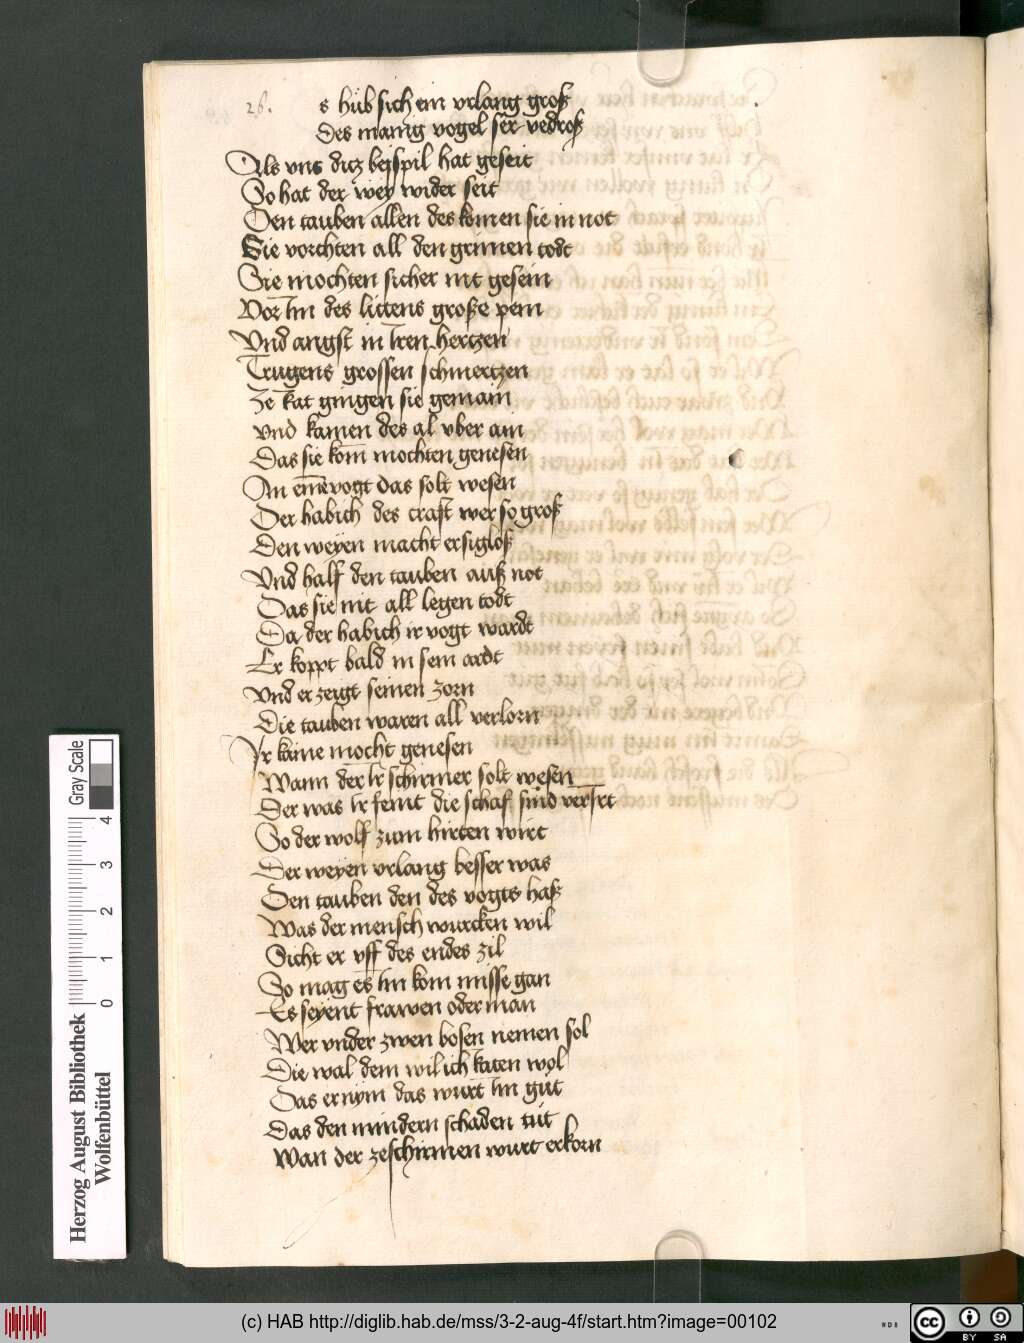 26.
s hůb sich ein vrlang groß
Des manig vogel ser vedroß
Als vns dicz beÿspil hat geseit
So hat der weÿ wider seit
Den tauben allen des komen sie in not
Sie vorchten all den grimen todt
Sie mochten sicher nit gesein
Vor Im des littens große pein
Vnd angst in Iren hertzen
Trugens grossen schmertzen
Ze Rat gingen sie gemain
vnd kamen des al vber ain
Das sie kom mochten genesen
An einē vogt das solt wesen
Der habich des craft wer so groß
Den weyen macht er sigloß
Vnd half den tauben auß not
Das sie nit all legen todt
Da der habich ir vogt wardt
Er koppt bald in sein ardt
vnd er zeigt seinen zorn
Die tauben waren all verlorn
Ir kaine mocht genesen
Wann der Ir schirmer solt wesen
Der was Ir feint die schaf sind verIrt
So der wolf zum hirten wirt
Der weyen vrlang besser was
Den tauben den des vogts haß
Was der mensch wurcken wil
Sicht er vff des endes zil
So mag es Im kom misse gan
Es seyent frawen oder man
Wer vnder zwen bosen nemen sol
Die wal dem wil ich Raten wol
Das er nÿm das wurt Im gůt
Das den mindern schaden tůt
Wan der ze schirmen wurt erkorn
Herzog August Bibliothek
Wolfenbüttel
0 1 2 3 4
Gray Scale
(c) HAB http://diglib.hab.de/mss/3-2-aug-4f/start.htm?image=00102
WDB
CC BY SA